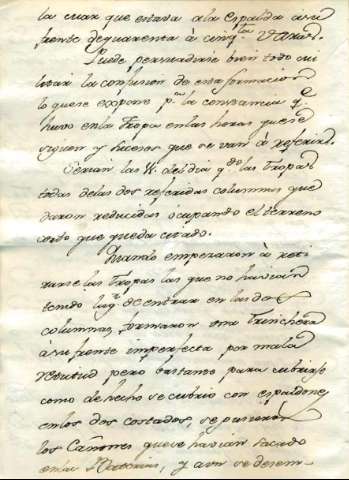 la cual que estava a la espalda a su
frente de quarenta à cinq.ta Varas.
Puede persuadirse bien todo mi
litar la confusion de esta formacion
lo que se expone p.a la constancia q.e
huvo en la Tropa en las horas que se
siguen y sucesos que se van à referir.
Serian las 11. del dia q.do las Tropas
todas de las dos referidas columnas que
daron reducidas ocupando el terreno
corto que queda citado.
Quando empezaron à reti
rarse las Tropas las que no havian
tenido lug.r de entrar en las dos
columnas, formaron una Trinchera
à su frente imperfecta por mala
pero bastante para cubrirse
como de hecho se cubrio con espaldones
en los dos costados, se pusieron
los Cañones que se havian sacado
en las Baterias, y aun se desem-